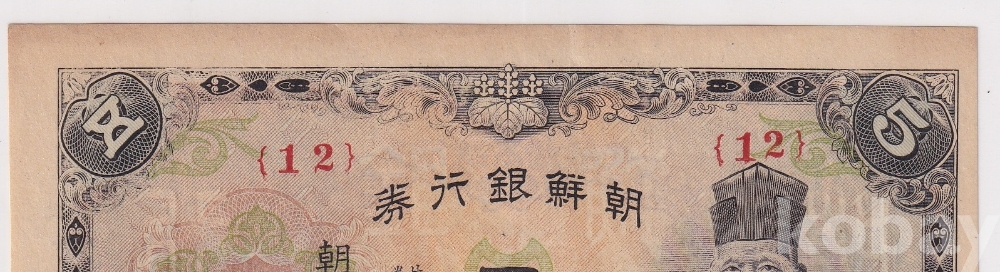 五
5
{12}
{12}
朝鮮銀行券
朝
kobay